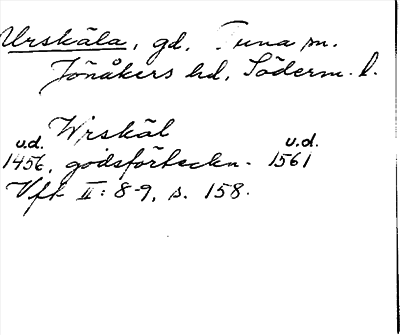 Urskäla, gd, Tuna sn.
Jönåkers hd, Söderm. l.
Wrskäl
u.d. 1456, godsförteckn. u.d. 1561
Vfk II: 8-9, s. 158.